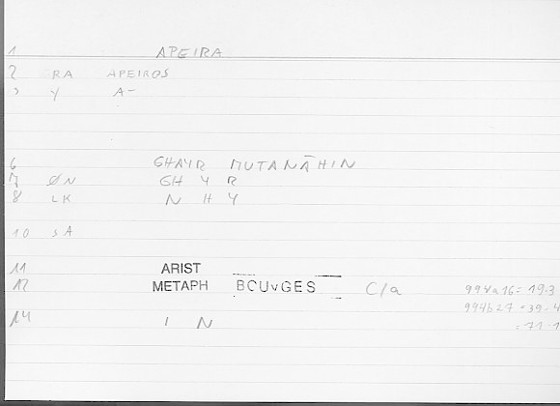 1 APEIRA
2 RA APEIROS
3 Y A-
6 GHAYR MUTANĀHIN
7 ØN GH Y R
8 LK N H Y
10 SA
11 ARIST
12 METAPH BOUYGES C/a 994a16= 19-3
994b27 = 39-4
= 71-1
14 I N